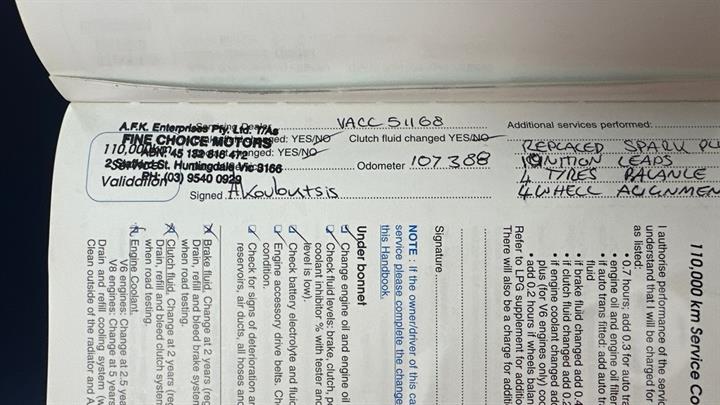 Servicing Dealer VACC 51168
A.F.K. Enterprises Pty. Ltd. T/As
FINE CHOICE MOTORS
changed: YES/NO Clutch fluid changed YES/NO
ABN: 45 132 816 472
changed: YES/NO
110,000
St. Huntingdale Vic 3166
PH: (03) 9540 0929
Validation
Odometer 107388
Signed A Koubutsis
Additional services performed:
REPLACED SPARK PLU
IGNITION LEADS
4 TYRES BALANCE
4 WHELL ALIGNMEN
110,000 km Service Co
I authorise performance of the servic
understand that I will be charged for
as listed:
• 0.7 hours; add 0.3 for auto tra
• engine oil and engine oil filter
• if auto trans fitted: add auto tr
fluid
• if brake fluid changed add 0.4
• if clutch fluid changed add 0.2
• if engine coolant changed add
plus (for V6 engines only) coo
• add 0.2 hours if wheels balan
Refer to LPG supplement for addition
There will also be a charge for additi
Signature
NOTE : If the owner/driver of this ca
service please complete the change
this Handbook.
Under bonnet
Change engine oil and engine oil
Check fluid levels: brake, clutch, p
coolant inhibitor % with tester and
level is low).
Check battery electrolyte and fluid
Engine accessory drive belts. Ch
condition.
Check for signs of deterioration ar
reservoirs, air ducts, all hoses and
Brake fluid. Change at 2 years (reg
Drain, refill and bleed brake system
when road testing.
Clutch fluid. Change at 2 years (re
Drain, refill and bleed clutch system
when road testing.
Engine Coolant.
V6 engines: Change at 2.5 yea
V8 engines: Change at 5 years
Drain and refill cooling system (w
Clean outside of the radiator and A